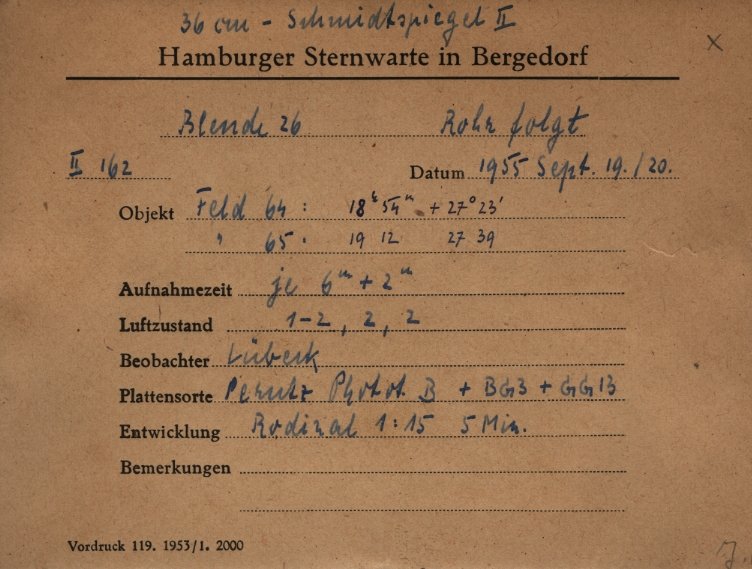 36 cm - Schmidtspiegel II
x
Hamburger Sternwarte in Bergedorf
Blende 26 Rohr folgt
II 162 Datum 1955 Sept. 19./20.
Objekt Feld 64 : 18ʰ 54ᵐ + 27° 23'
" 65 : 19 12 27 39
Aufnahmezeit je 6ᵐ + 2ᵐ
Luftzustand 1-2, 2, 2
Beobachter Lübeck
Plattensorte Perutz Photot. B + BG3 + GG13
Entwicklung Rodinal 1:15 5 Min.
Bemerkungen
Vordruck 119. 1953/1. 2000